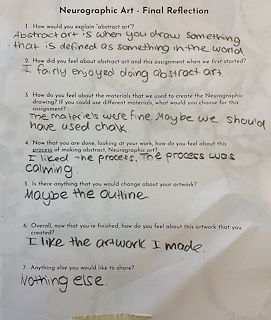 Neurographic Art - Final Reflection
1. How would you explain "abstract art"?
Abstract art is when you draw something
that is defined as something in the world
2. How did you feel about abstract art and this assignment when we first started?
I fairly enjoyed doing abstract art.
3. How do you feel about the materials that we used to create the Neurographic
drawing? If you could use different materials, what would you choose for this
assignment?
The materiels were fine. Maybe we should
have used chalk.
4. Now that you are done, looking at your work, how do you feel about this
process of making abstract, Neurographic art?
I liked the process. The process was
calming.
5. Is there anything that you would change about your artwork?
Maybe the outline.
6. Overall, now that you're finished, how do you feel about this artwork that you
created?
I like the artwork I made.
7. Anything else you would like to share?
Nothing else.